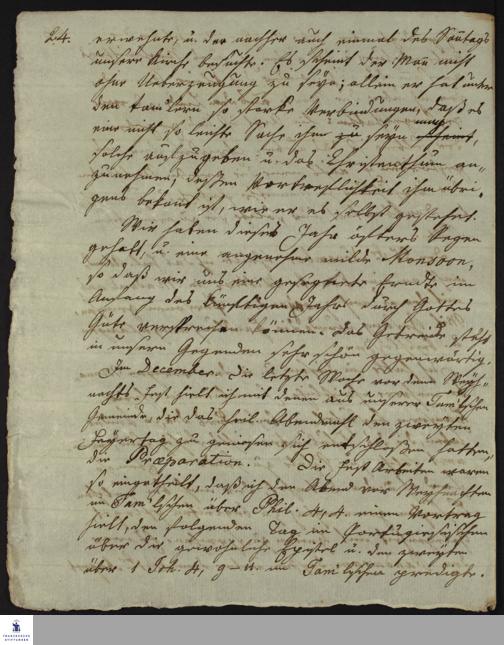 24. erwehnte, u. der nachher auch einmal des Sontags
unsere Kirche besuchte. Es scheint der Man nicht
ohne Ueberzeugung zu seyn; allein er hat unter
den so starke Verbindungen, daß es
eine nicht so leichte Sache ihm zu seyn scheint, mag
solche aufzugeben u. das Christenthum an-
zunehmen, dessen Vortreflichkeit ihm übri-
gens bekant ist, wie er es selbst gestehet.
Wir haben dieses Jahr öfters Regen
gehabt, u. eine angenehme milde Monsoon,
so daß wir uns eine gesegnete Erndte im
Anfang des künftigen Jahrs durch Gottes
Güte versprechen können. Das Getreide steht
in unsern Gegenden sehr schön gegenwärtig.
Im December die letzte Woche vor dem Weyh-
nachts-Fest hielt ich mit denen aus unserer Tamulschen
Gemeinde, die das heil. Abendmahl den zweyten
Feyertag zu geniesen sich entschloßen hatten,
die Præparation. Die Fest Arbeiten waren
so eingetheilt, daß ich den Abend vor Weyhnachten
im Tamulschen über Phil. 4, 4. einen Vortrag
hielt, den folgenden Tag im Portugiesischen
über die gewöhnliche Epistel u. den zweyten
über 1 Joh. 4, 9-11 im Tamulschen predigte.
FRANCKESCHE
STIFTUNGEN